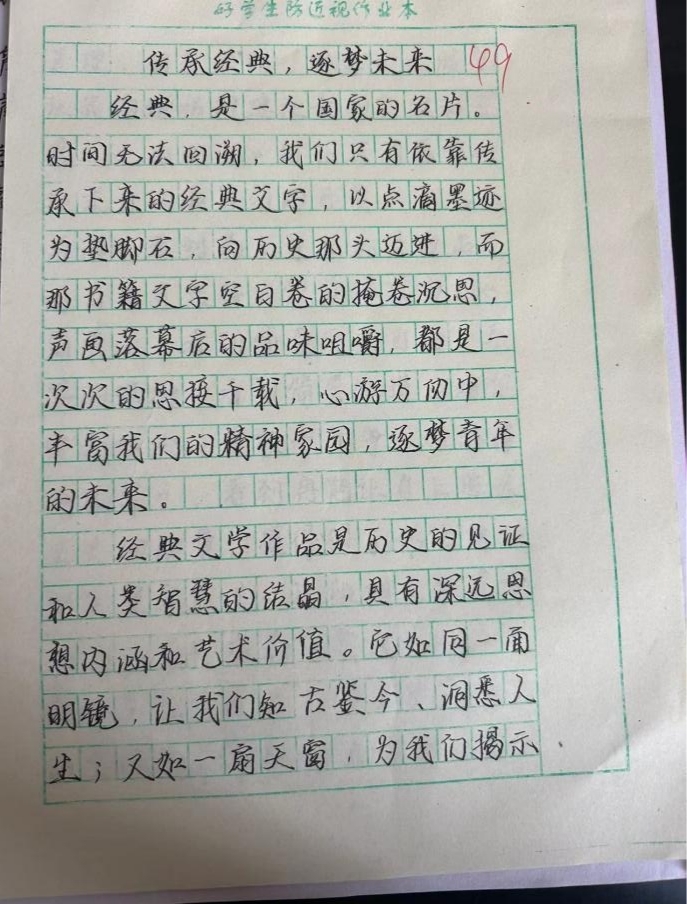 好学生防近视作业本
传承经典，逐梦未来 49
经典，是一个国家的名片。
时间无法回溯，我们只有依靠传
承下来的经典文字，以点滴墨迹
为垫脚石，向历史那头迈进，而
那书籍文字空白卷的掩卷沉思，
声画落幕后的品味咀嚼，都是一
次次的思接千载，心游万仞中，
丰富我们的精神家园，逐梦青年
的未来。
经典文学作品是历史的见证
和人类智慧的结晶，具有深远思
想内涵和艺术价值。它如同一面
明镜，让我们知古鉴今、洞悉人
生；又如一扇天窗，为我们揭示